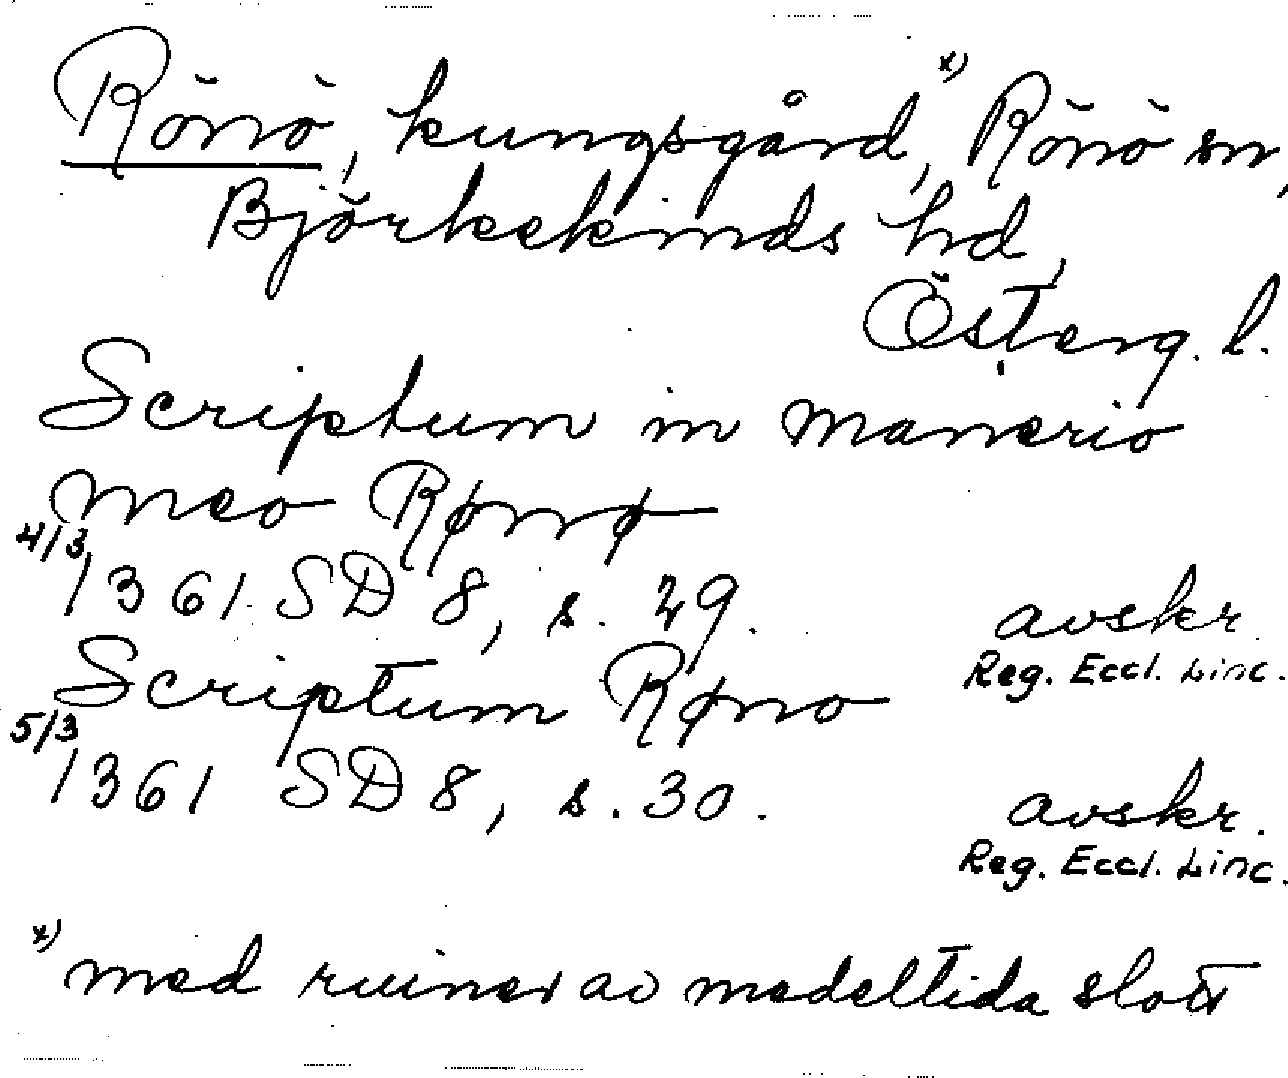 Rönö, kungsgård,x) Rönö sn,
Björkekinds hd,
Österg. l.
Scriptum in manerio
meo Rønø
4/3 1361 SD 8, s. 29. avskr.
Reg. Eccl. Linc.
Scriptum Røno
5/3 1361 SD 8, s. 30. avskr.
Reg. Eccl. Linc.
x) med ruiner av medeltida slott